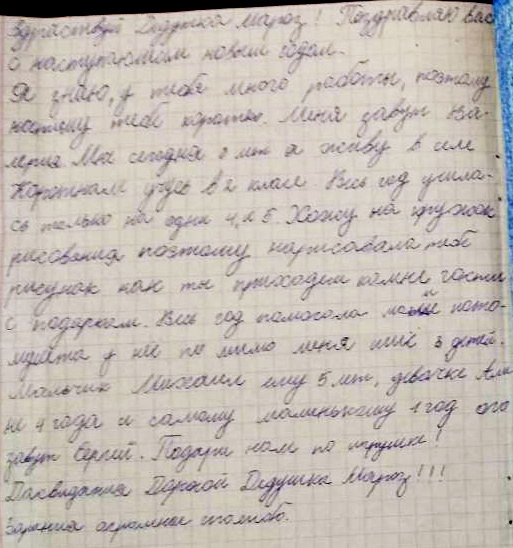 Здраствуй Дедушка Мароз! Поздравляю вас
с наступаюшим новым годом.
Я знаю, у тебя много работы, поэтому
напишу тебе коротко. Меня завут Ва-
лерия. Мне сегодня 8 лет я живу в селе
учусь в 2 класе. Весь год учила-
сь только на одни 4, и 5. Хожу на кружок
рисования поэтому нарисавала тебе
рисунак как ты приходем камне гости
с подаркам. Весь год памогала маме пото-
мушта у неё по мимо меня ишё 3 детей.
Мальчик Михаил ему 5 лет, девочке Али
не 4 года и самому маленькому 1 год его
завут Сергей. Подари нам по игрушке!
Дасвидания Дорогой Дедушка Мароз!!!
Зарание огромное спасибо.